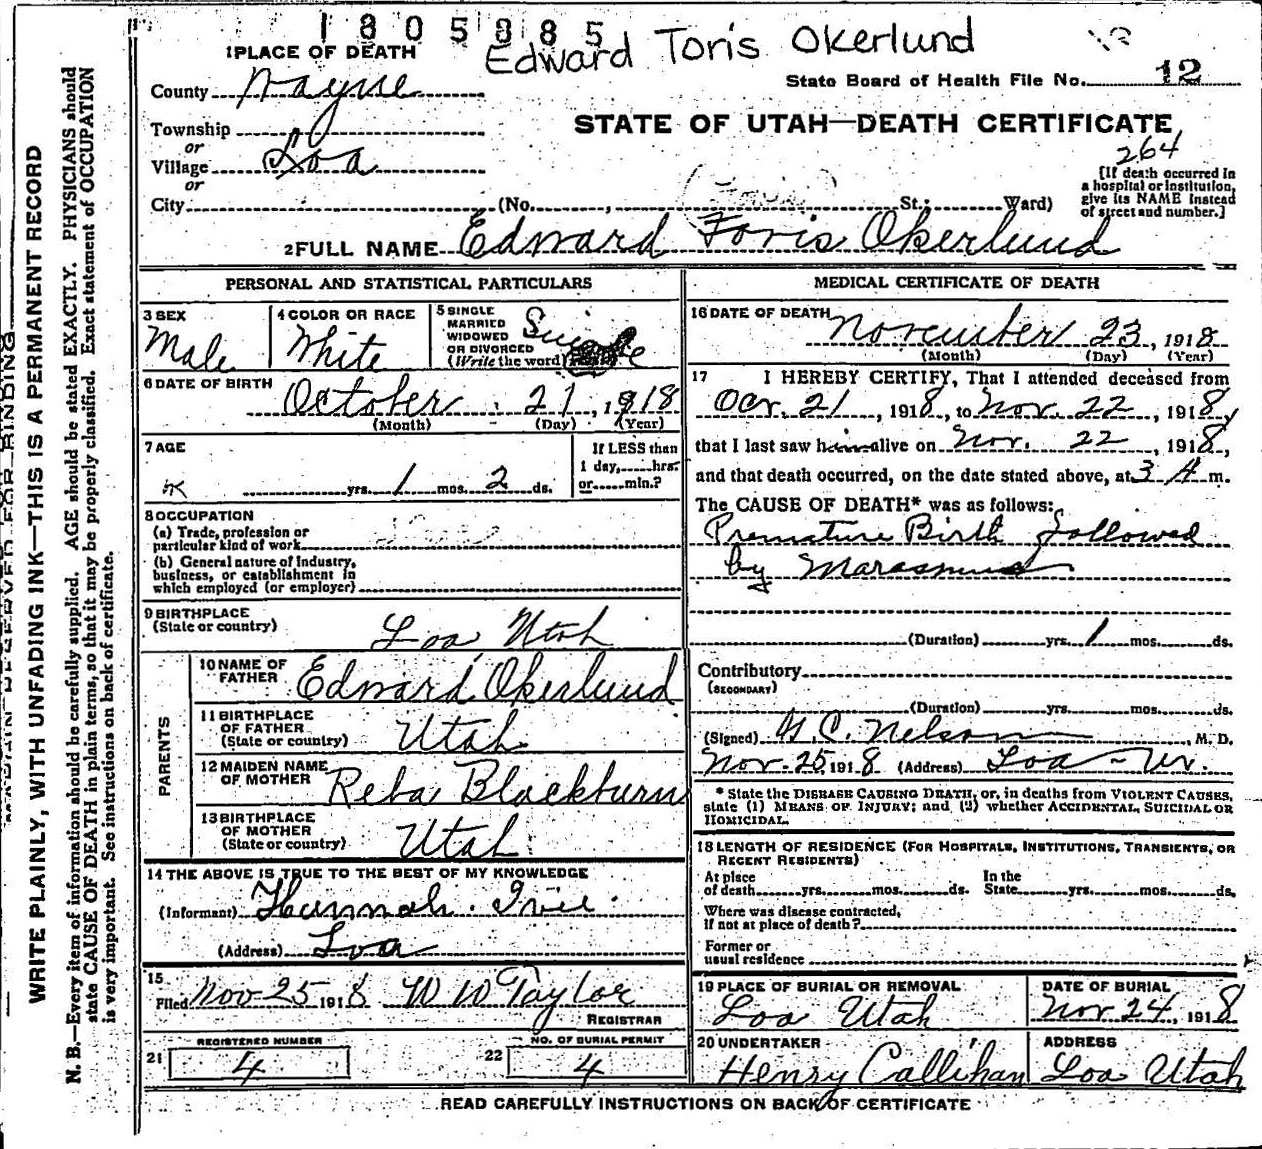 1805885
Edward Toris Okerlund
1 PLACE OF DEATH
State Board of Health File No. 12
County Wayne
STATE OF UTAH—DEATH CERTIFICATE
264
Township
or
Village Loa
or
City (No. , St.; Ward)
[If death occurred in
a hospital or institution,
give its NAME instead
of street and number.]
2 FULL NAME Edward Toris Okerlund
PERSONAL AND STATISTICAL PARTICULARS
3 SEX
Male
4 COLOR OR RACE
White
5 SINGLE
MARRIED
WIDOWED
OR DIVORCED
(Write the word)
Single
6 DATE OF BIRTH
October 21, 1918
(Month) (Day) (Year)
7 AGE
yrs. 1 mos. 2 ds.
If LESS than
1 day, hrs.
or min.?
8 OCCUPATION
(a) Trade, profession or
particular kind of work
(b) General nature of industry,
business, or establishment in
which employed (or employer)
9 BIRTHPLACE
(State or country) Loa Utah
PARENTS
10 NAME OF
FATHER Edward Okerlund
11 BIRTHPLACE
OF FATHER
(State or country) Utah
12 MAIDEN NAME
OF MOTHER Reba Blackburn
13 BIRTHPLACE
OF MOTHER
(State or country) Utah
14 THE ABOVE IS TRUE TO THE BEST OF MY KNOWLEDGE
(Informant) Hannah Ivie
(Address) Loa
15
Filed Nov 25 1918 W W Taylor
REGISTRAR
REGISTERED NUMBER
21 4
NO. OF BURIAL PERMIT
22 4
MEDICAL CERTIFICATE OF DEATH
16 DATE OF DEATH
November 23, 1918
(Month) (Day) (Year)
17 I HEREBY CERTIFY, That I attended deceased from
Oct. 21, 1918, to Nov. 22, 1918,
that I last saw him alive on Nov. 22, 1918,
and that death occurred, on the date stated above, at 3 A m.
The CAUSE OF DEATH* was as follows:
Premature Birth followed
by Marasmus
(Duration) yrs. 1 mos. ds.
Contributory
(SECONDARY)
(Duration) yrs. mos. ds.
(Signed) G. C. Nelson, M. D.
Nov. 25, 1918 (Address) Loa - Ut.
* State the DISEASE CAUSING DEATH, or, in deaths from VIOLENT CAUSES,
state (1) MEANS OF INJURY; and (2) whether ACCIDENTAL, SUICIDAL OR
HOMICIDAL.
18 LENGTH OF RESIDENCE (FOR HOSPITALS, INSTITUTIONS, TRANSIENTS, OR
RECENT RESIDENTS)
At place
of death yrs. mos. ds.
In the
State yrs. mos. ds.
Where was disease contracted,
if not at place of death?
Former or
usual residence
19 PLACE OF BURIAL OR REMOVAL
Loa Utah
DATE OF BURIAL
Nov 24, 1918
20 UNDERTAKER
Henry Callihan
ADDRESS
Loa Utah
READ CAREFULLY INSTRUCTIONS ON BACK OF CERTIFICATE
WRITE PLAINLY, WITH UNFADING INK—THIS IS A PERMANENT RECORD
N. B.—Every item of information should be carefully supplied. AGE should be stated EXACTLY. PHYSICIANS should
state CAUSE OF DEATH in plain terms, so that it may be properly classified. Exact statement of OCCUPATION
is very important. See instructions on back of certificate.